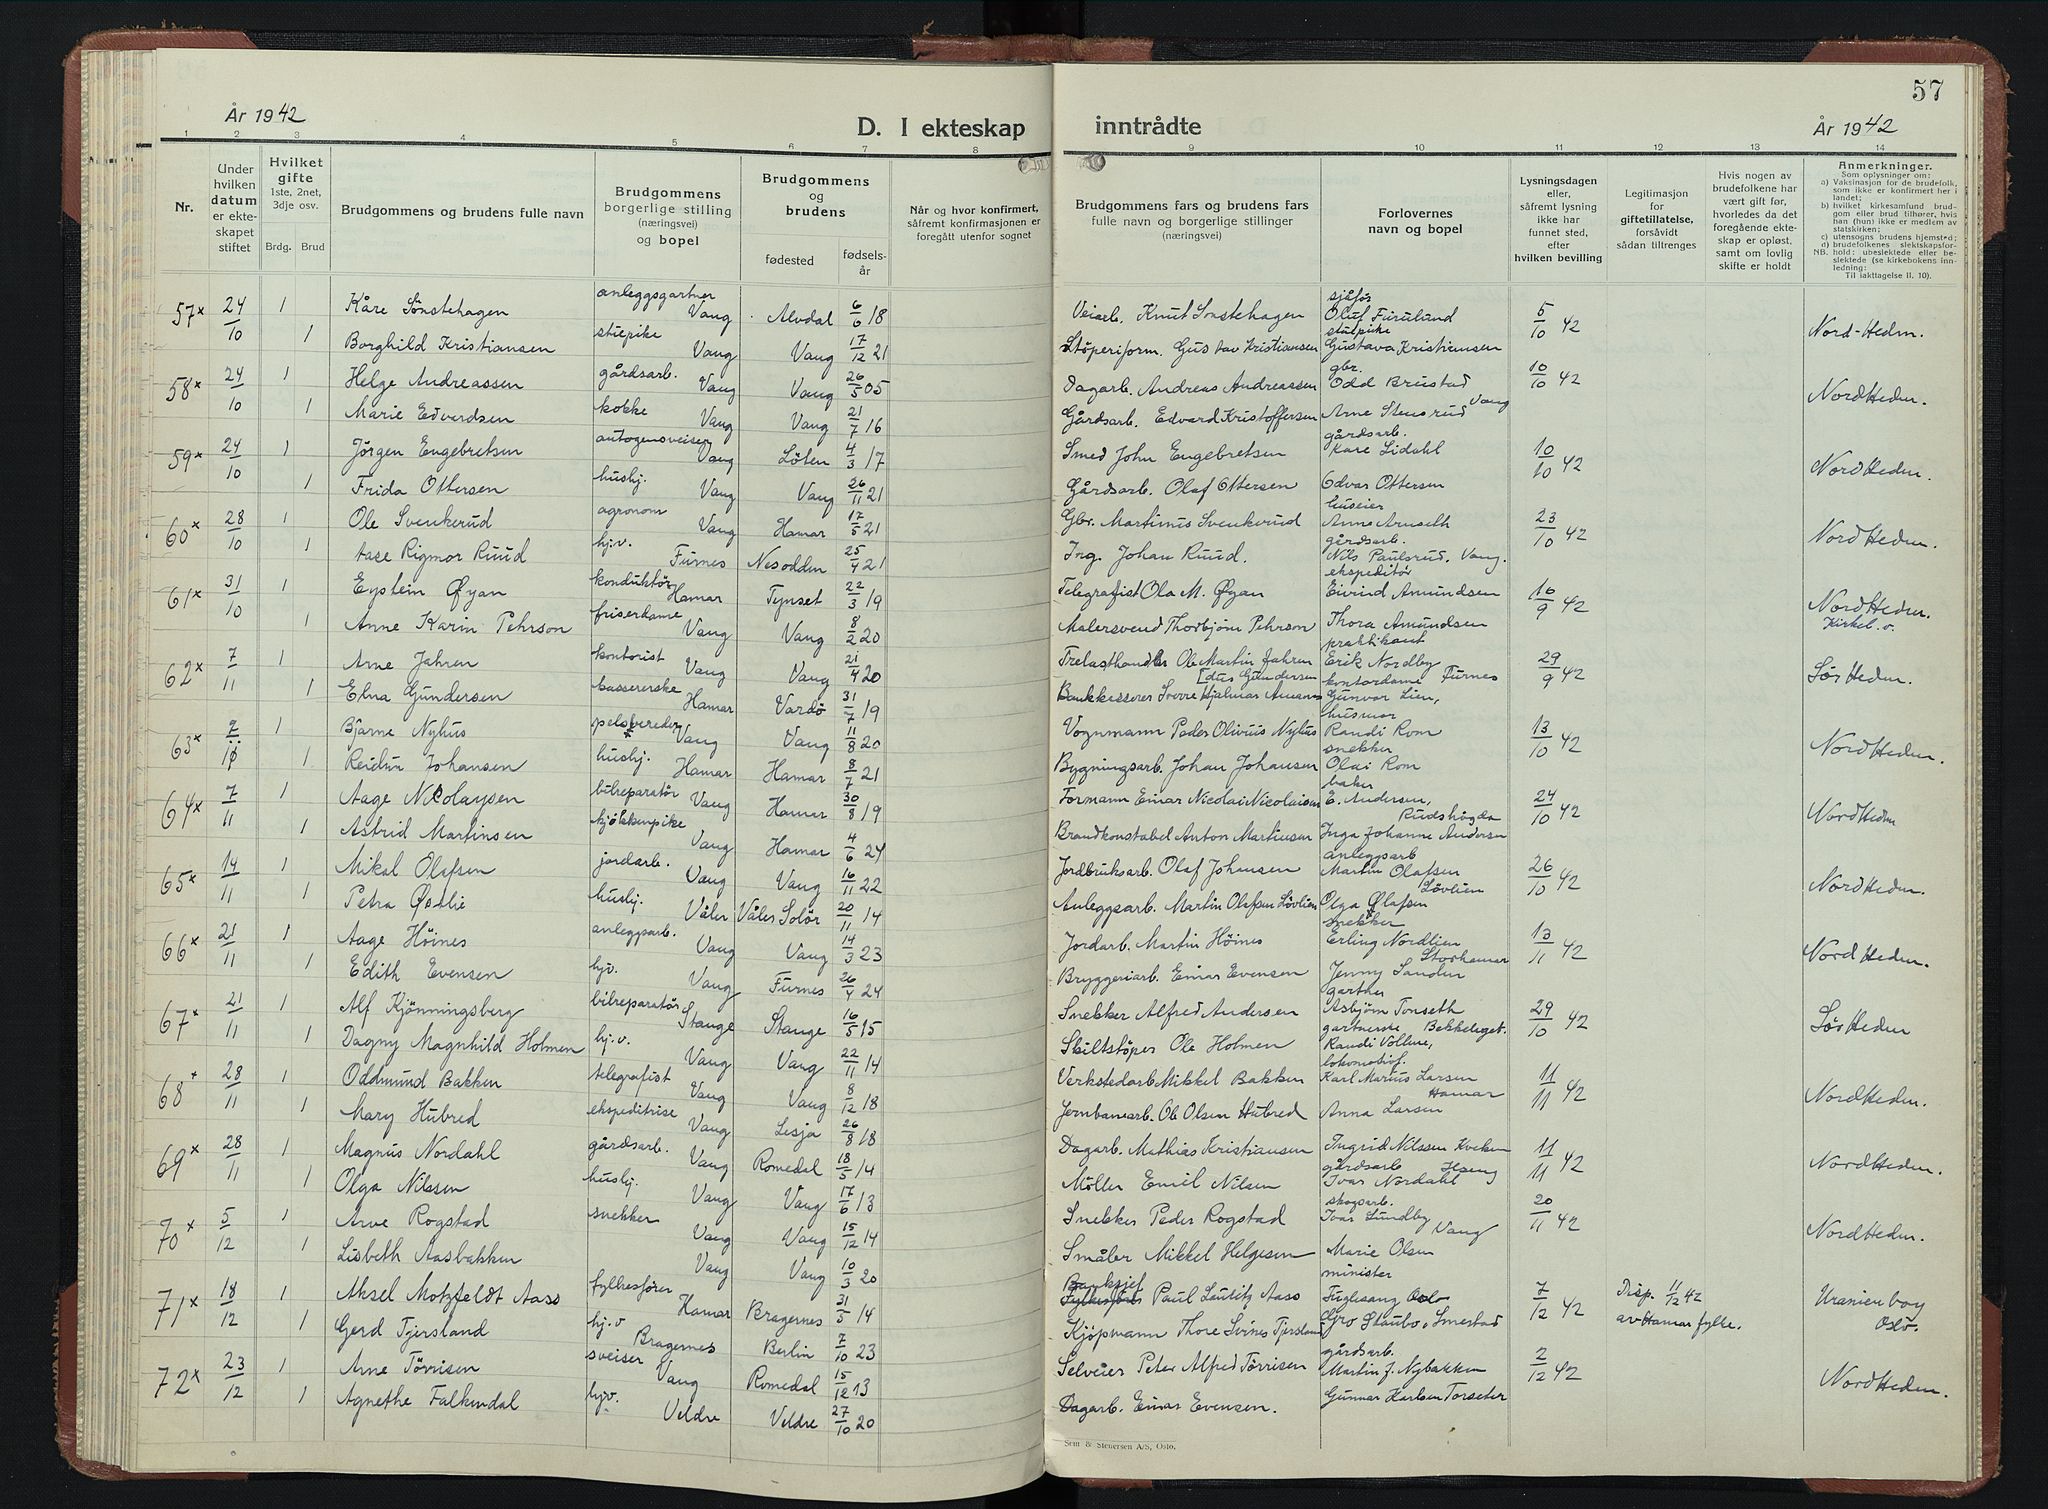 57
År 1942
D. I ekteskap inntrådte
År 1942
1 2 3 4 5 6 7 8 9 10 11 12 13 14
Nr.
Under hvilken datum er ekteskapet stiftet
Hvilket gifte 1ste, 2net, 3dje osv.
Brdg. Brud
Brudgommens og brudens fulle navn
Brudgommens borgerlige stilling (næringsvei) og bopel
Brudgommens og brudens
fødested
fødselsår
Når og hvor konfirmert, såfremt konfirmasjonen er foregått utenfor sognet
Brudgommens fars og brudens fars fulle navn og borgerlige stillinger (næringsvei)
Forlovernes navn og bopel
Lysningsdagen eller, såfremt lysning ikke har funnet sted, efter hvilken bevilling
Legitimasjon for giftetillatelse, forsåvidt sådan tiltrenges
Hvis nogen av brudefolkene har vært gift før, hvorledes da det foregående ekteskap er opløst, samt om lovlig skifte er holdt
Anmerkninger.
Som oplysninger om:
a) Vaksinasjon for de brudefolk, som ikke er konfirmert her i landet;
b) hvilket kirkesamfund brudgom eller brud tilhører, hvis han (hun) ikke er medlem av statskirken;
c) utensogns brudens hjemsted;
d) brudefolkenes slektskapsforhold: ubeslektede eller beslektede (se kirkebokens innledning:
NB.
Til iakttagelse II. 10).
57x 24/10 1 Kåre Sønstehagen anleggsgartner Vang Alvdal 6/6 18 Veiarb. Knut Sønstehagen sjåfør Oluf Furulund 5/10 42 Nord-Hedm.
1 Borghild Kristiansen stuepike Vang Vang 17/12 21 Støperiform. Gustav Kristiansen stuepike Gustava Kristiansen
58x 24/10 1 Helge Andreassen gårdsarb. Vang Vang 26/5 05 Dagarb. Andreas Andreassen gbr. Odd Brustad 10/10 42 Nord Hedm.
1 Marie Edvardsen kokke Vang Vang 21/7 16 Gårdsarb. Edvard Kristoffersen Arne Stensrud Vang
59x 24/10 1 Jörgen Engebretsen autogensveiser Vang Löten 4/3 17 Smed John Engebretsen gårdsarb. Kåre Lidahl 10/10 42 Nord Hedm.
1 Frida Ottersen hushj. Vang Vang 26/11 21 Gårdsarb. Olaf Ottersen Edvar Ottersen
60x 28/10 1 Ole Svenkerud agronom Vang Hamar 17/5 21 Gbr. Martinius Svenkerud huseier Anne Arnseth 23/10 42 Nord Hedm.
1 Aase Rigmor Ruud hj.v. Furnes Nesodden 25/4 21 Ing. Johan Ruud. gårdsarb. Nils Paulsrud, Vang.
61x 31/10 1 Eystein Øyan konduktør Hamar Tynset 22/3 19 Telegrafist Ola M. Øyan ekspeditør Eivind Amundsen 16/9 42 Nord Hedm. Kirkel. v.
1 Anne Karin Pehrson friserdame Vang Vang 8/2 20 Malersvend Thorbjørn Pehrson Thora Amundsen
62x 7/11 1 Arne Jahren kontorist Vang Vang 21/4 20 Trelasthandler Ole Martin Jahren praktikant Erik Nordby Furnes 29/9 42 Sør Hedm.
1 Elna Gundersen kassererske Hamar Vardö 31/7 19 Bankkasserer Sverre Hjalmar Gundersen kontordame Gunvor Lien,
63x 7/11 1 Bjarne Nyhus pelsbereder Vang Vang 11/8 20 Vognmann Peder Olivius Nyhus husmor Randi Rom 13/10 42 Nord Hedm.
1 Reidun Johansen hushj. Hamar Hamar 8/7 21 Bygningsarb. Johan Johansen snekker Olai Rom
64x 7/11 1 Aage Nicolaysen bilreparatør Vang Hamar 30/8 19 Formann Einar Nicolai Nicolaisen baker E. Andersen, Rudshøgda 24/10 42 Nord Hedm
1 Astrid Martinsen kjøkkenpike Vang Hamar 4/6 24 Brandkonstabel Anton Martinsen Inga Johanne Andersen
65x 14/11 1 Mikal Olafsen jordarb. Vang Vang 16/11 22 Jordbruksarb. Olaf Johansen anleggsarb Martin Olafsen Løvlien 26/10 42 Nord Hedm.
1 Petra Østlie hushj. Våler Våler Solör 20/11 14 Anleggsarb. Martin Olafsen Løvlien Olga Olafsen
66x 21/11 1 Aage Höines anleggsarb. Vang Vang 14/3 23 Jordarb. Martin Höines snekker Erling Nordlien Storhamar 13/11 42 Nord Hedm.
1 Edith Evensen hjv. Vang Furnes 26/4 24 Bryggeriarb. Einar Evensen Jenny Sanden
67x 21/11 1 Alf Kjønningsberg bilreparatør Stange Stange 16/5 15 Snekker Alfred Andersen gartner Asbjørn Tonseth Bekkelaget. 29/10 42 Sør Hedm
1 Dagny Magnhild Holmen hj.v. Vang Vang 22/11 14 Skiltstøper Ole Holmen gartnerske Randi Vollme,
68x 28/11 1 Oddmund Bakken telegrafist Vang Vang 8/12 18 Verkstedarb Mikkel Bakken lokomotivf. Karl Marius Larsen Hamar 11/11 42 Nord Hedm.
1 Mary Hubred ekspeditrise Vang Lesja 26/8 18 Jernbanearb. Ole Olsen Hubred Anna Larsen
69x 28/11 1 Magnus Nordahl gårdsarb. Vang Romedal 18/5 14 Dagarb. Mathias Kristiansen Ingrid Nilssen 11/11 42 Nord Hedm.
1 Olga Nilssen hushj. Vang Vang 17/6 13 Möller Emil Nilsen gårdsarb Ivar Nordahl
70x 5/12 1 Arve Rogstad snekker Vang Vang 15/12 14 Snekker Peder Rogstad skogsarb. Ivar Lundby Vang 20/11 42 Nord Hedm.
1 Lisbeth Aasbakken Vang Vang 10/3 20 Småbr. Mikkel Helgesen Marie Olsen
71x 18/12 1 Aksel Motzfeldt Aass fylkesfører Hamar Bragernes 31/5 14 Banksjef Paul Lauritz Aass minister Fuglesang Oslo 7/12 42 Disp. 11/12 42 av Hamar fylke. Uranienborg Oslo.
1 Gerd Tjersland hj.v Bragernes Berlin 7/10 23 Kjöpmann Thore Svines Tjersland Gro Staubo, Smestad
72x 23/12 1 Arne Tørrisen sveiser Vang Romedal 15/12 13 Selveier Peter Alfred Tørrisen gårdsarb. Martin J. Nybakken 2/12 42 Nord Hedm.
1 Agnethe Falkendal hjv. Veldre Veldre 27/10 20 Dagarb. Einar Evensen. Gunnar Karlsen Torseter
Sem & Stenersen A/S, Oslo.